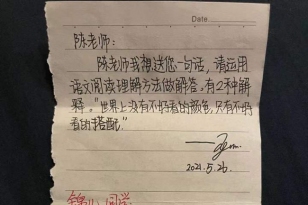 Date
陈老师：
陈老师我想送您一句话，请运用
语文阅读理解方法做解答，有2种解
释。"世界上没有不好看的颜色，只有不好
看的搭配。"
2021.5.26.
同学